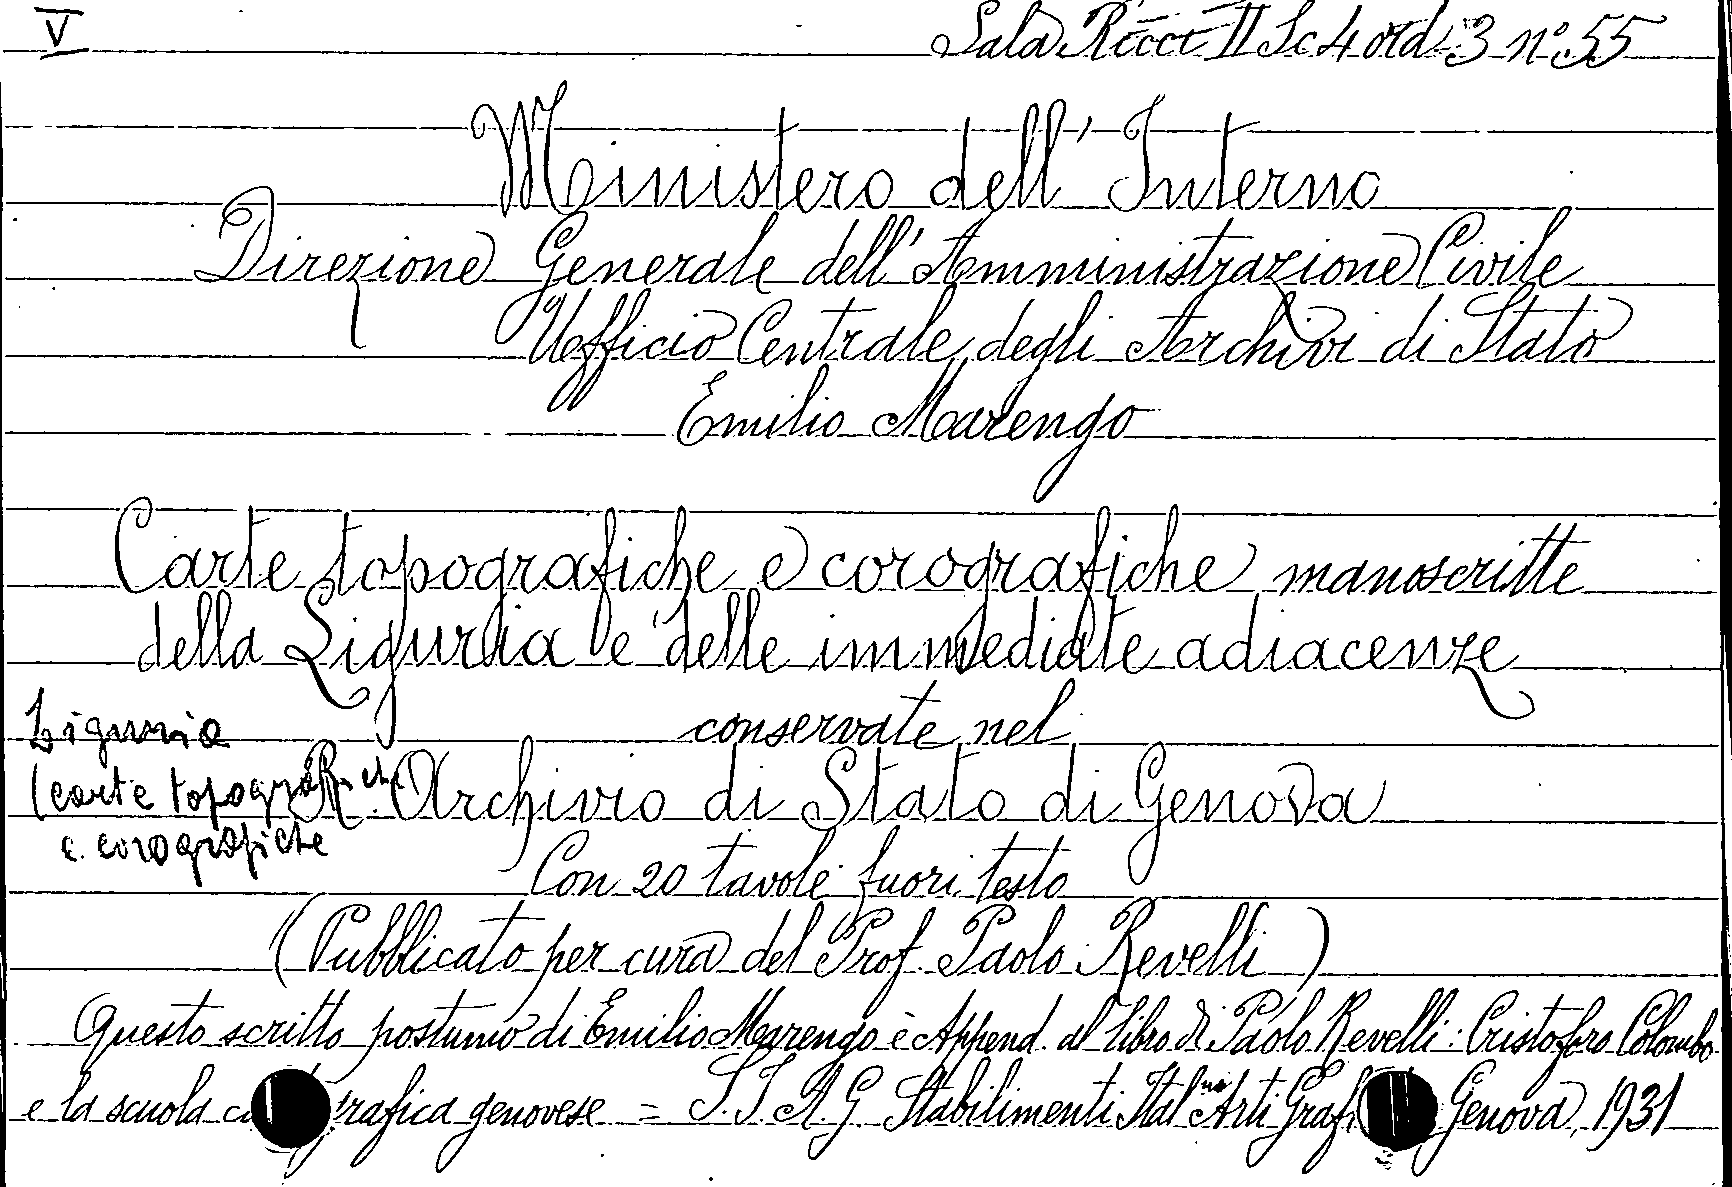 V
Sala Ricci II Sc 4 ord. 3 n° 55
Ministero dell' Interno
Direzione Generale dell' Amministrazione Civile
Ufficio Centrale degli Archivi di Stato
Emilio Marengo
Carte topografiche e corografiche manoscritte
della Liguria e delle immediate adiacenze
conservate nel
R. Archivio di Stato di Genova
Liguria
(carte topografiche
e corografiche
Con 20 tavole fuori testo
(Pubblicato per cura del Prof. Paolo Revelli)
Questo scritto postumo di Emilio Marengo è Append. al libro di Paolo Revelli: Cristoforo Colombo
e la scuola cartografica genovese = S.I.A.G. Stabilimenti Ital.ni Arti Graf. Genova, 1931